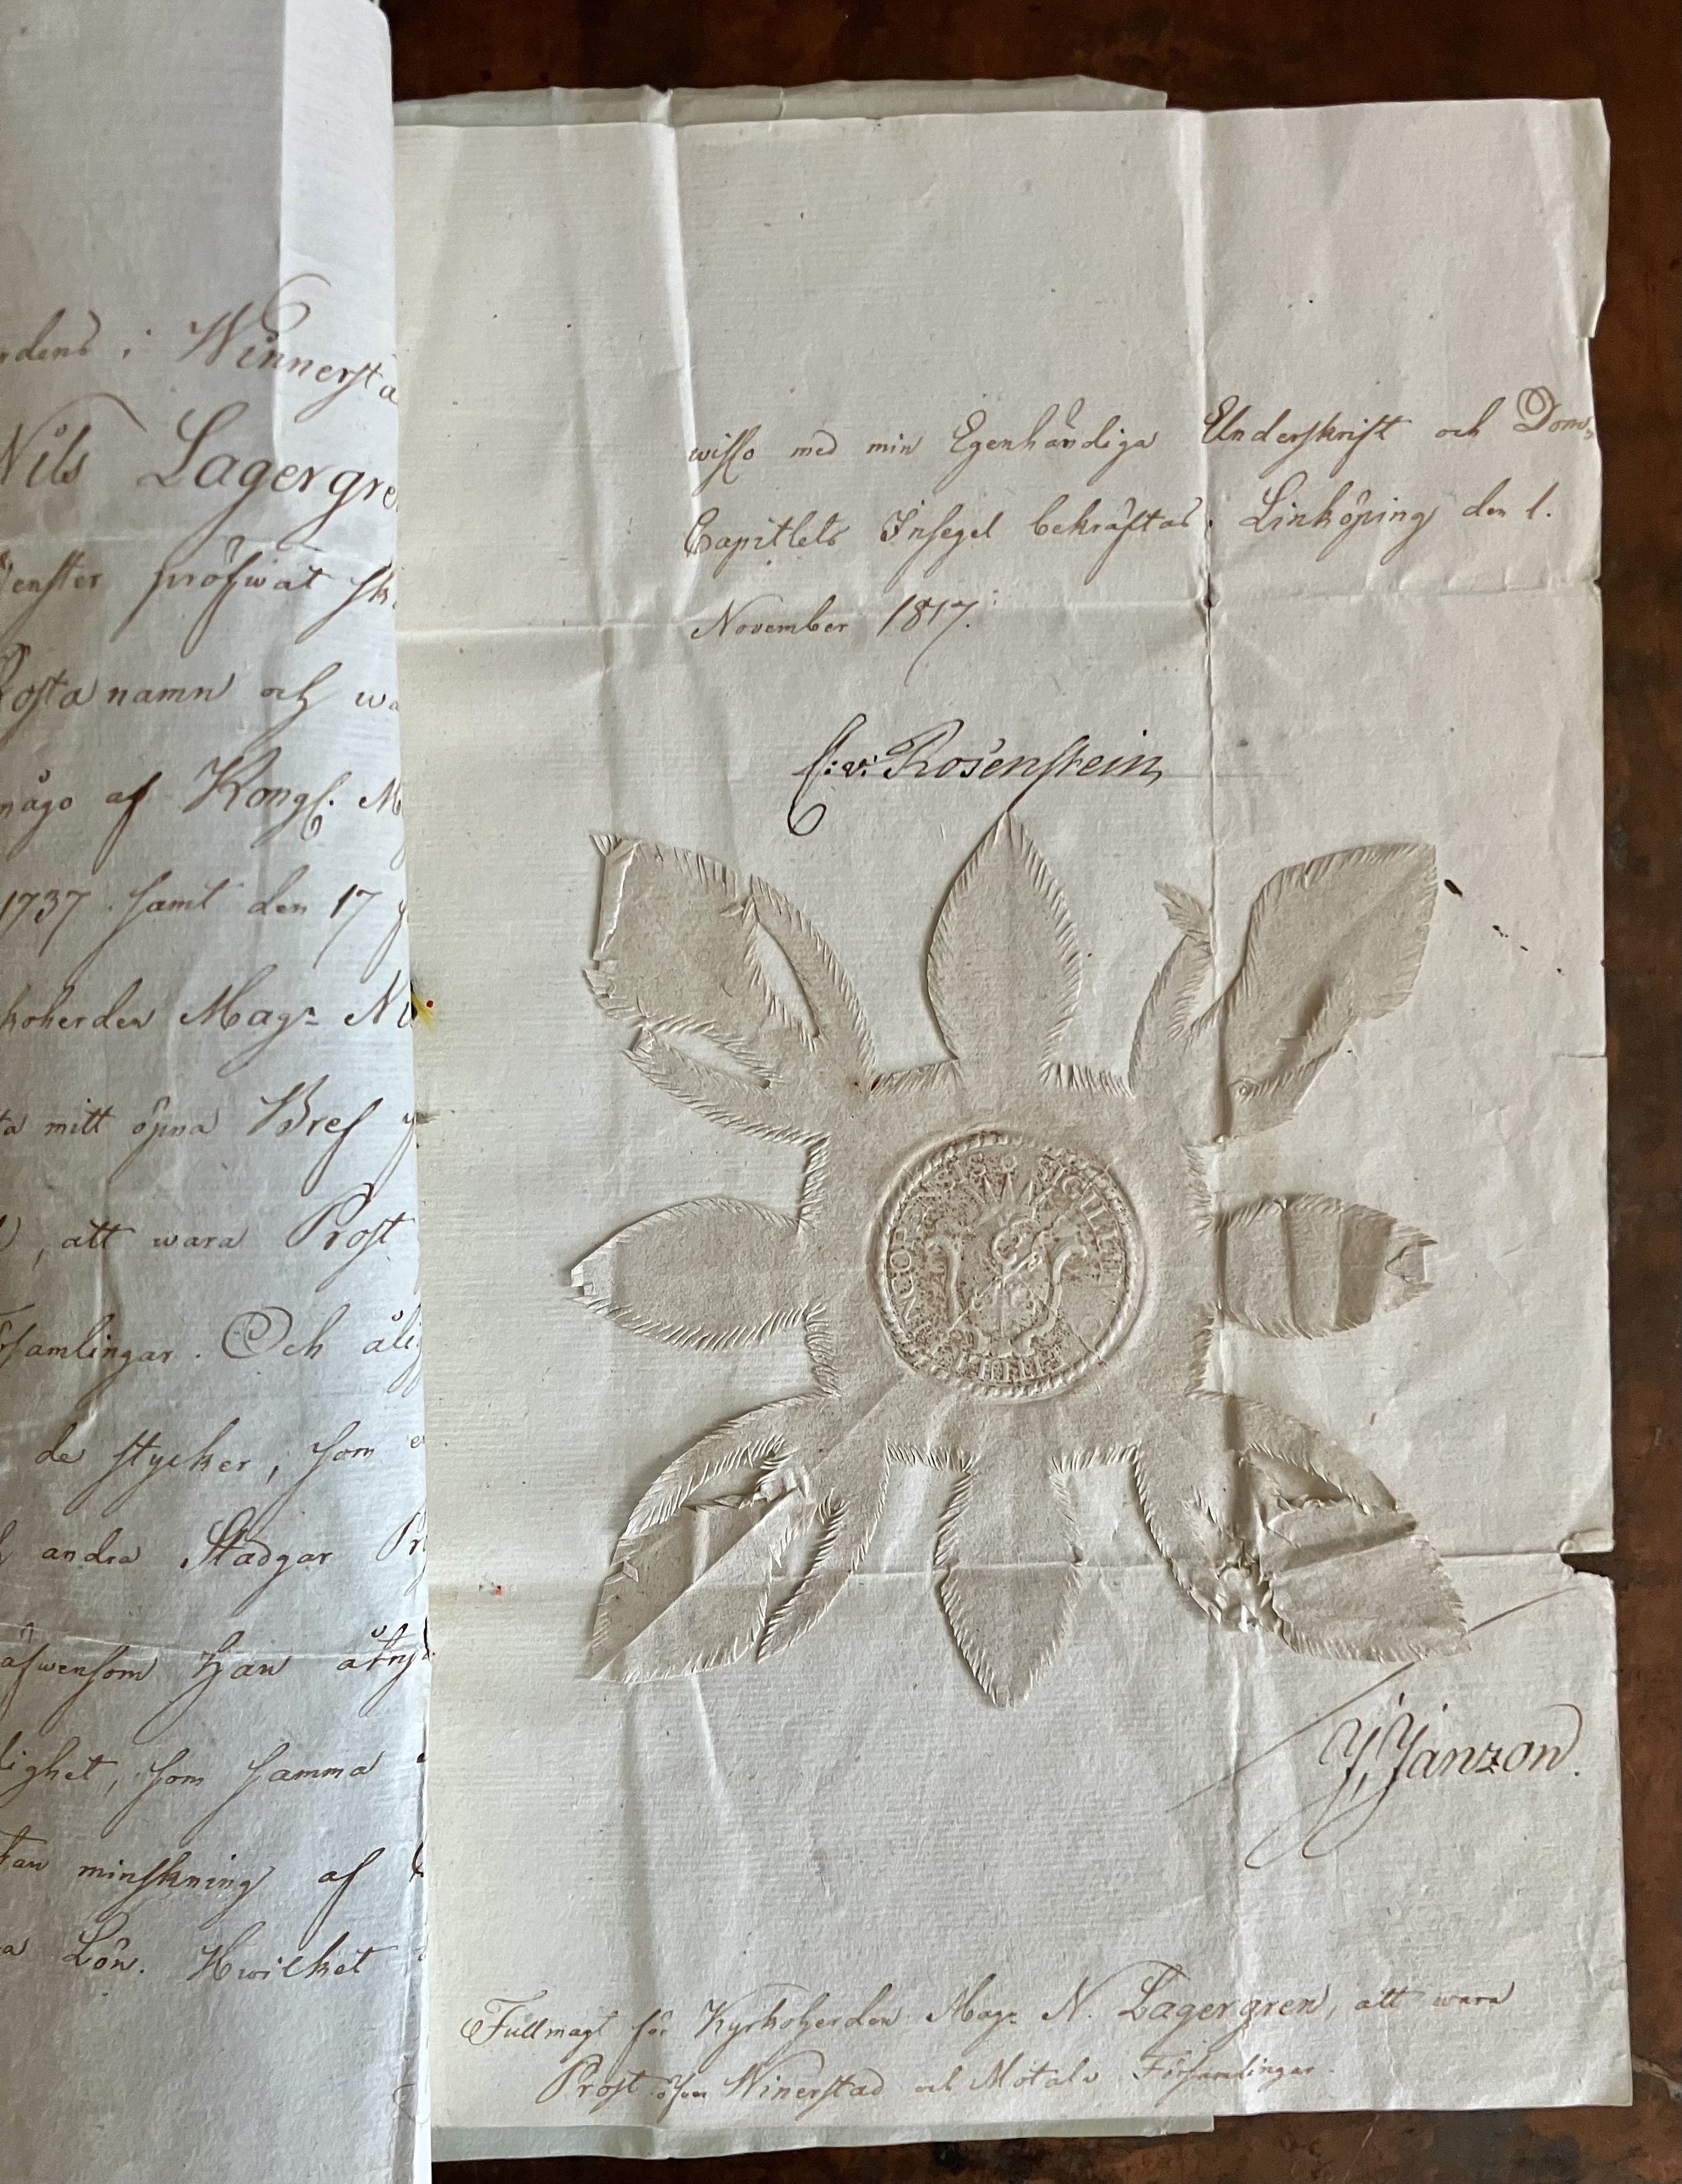 i Winnersta
Nils Lagergre
pröfwat
namn och
af Kongl. M
1737. samt den 17
Mag:r N
mitt öpna Bref
, att wara Prost
. Och
de stycker, som
andra Stadgar Pr
äfwensom Han åtnj
, som samma
minskning af
Lön. Hwilket
wisso med min Egenhändiga Underskrift och Dom-
Capitlets Insegel bekräftas. Linköping den 1.
November 1817.
C: v: Rosenstein
SIGILLUM
J. Janzon.
Fullmagt för Kyrkoherden Mag:r N. Lagergren, att wara
Prost öfwer Winerstad och Motala Församlingar.